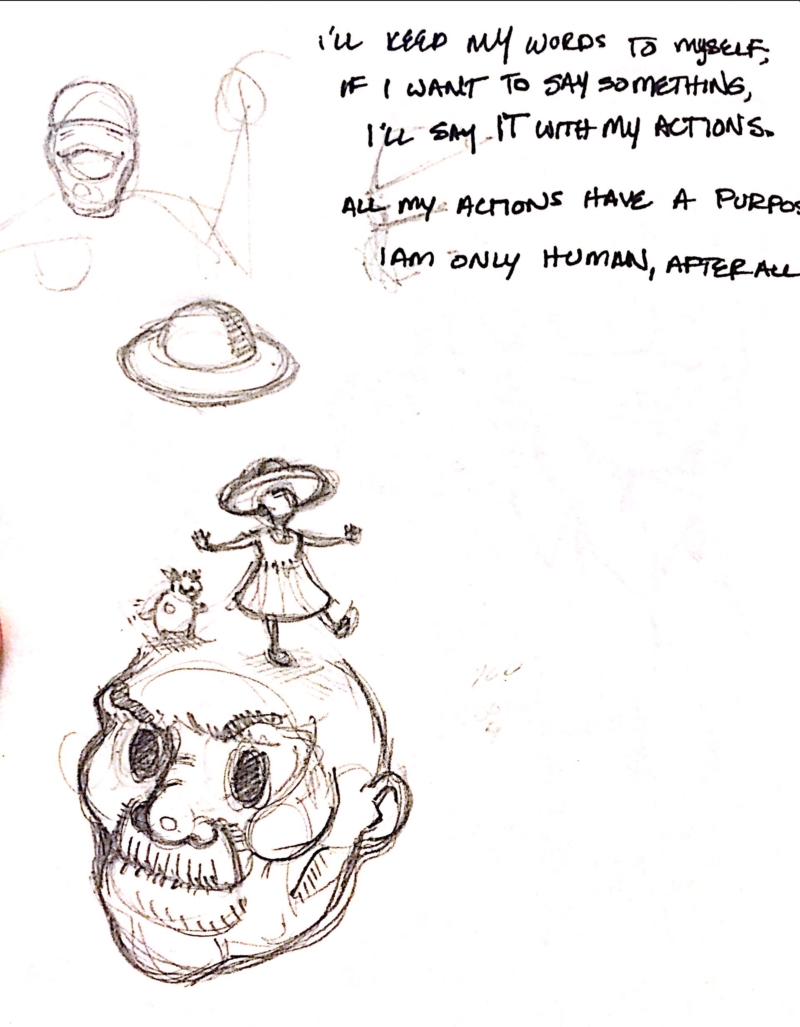 I'LL KEEP MY WORDS TO MYSELF,
IF I WANT TO SAY SOMETHING,
I'LL SAY IT WITH MY ACTIONS.
ALL MY ACTIONS HAVE A PURPOS
I AM ONLY HUMAN, AFTER ALL